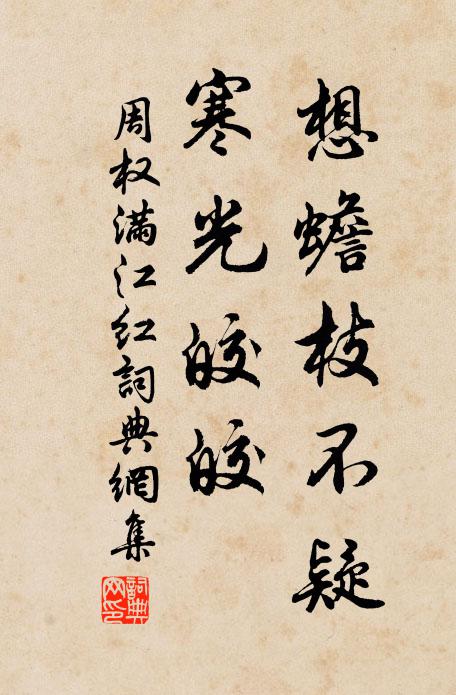 想蟾枝不疑
寒光皎皎
周权满江红詞典網集
詞典网印